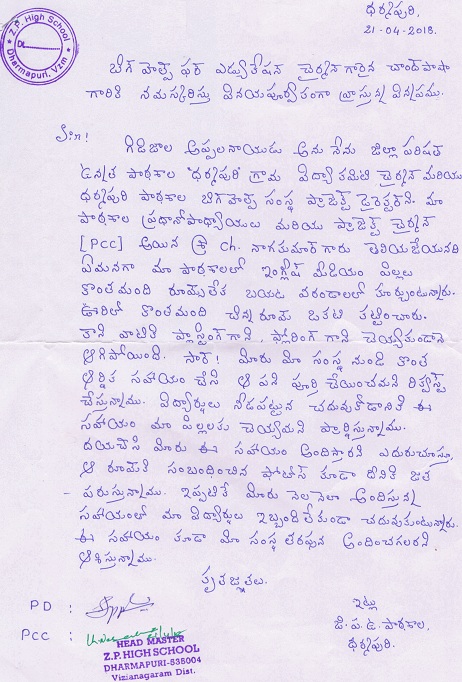 Z.P. High School
Dharmapuri, Vzm
ధర్మపురి,
21-04-2018.
బిగ్ హెల్ప్ ఫర్ ఎడ్యుకేషన్ చైర్మన్ గారైన చాంద్ పాషా
గారికి నమస్కరిస్తు వినయపూర్వకంగా వ్రాస్తున్న విన్నపము.
Sir!
గిడిజాల అప్పలనాయుడు అను నేను జిల్లా పరిషత్
ఉన్నత పాఠశాల "ధర్మపురి గ్రామ విద్యాకమిటి చైర్మన్ మరియు
ధర్మపురి పాఠశాల బిగ్ హెల్ప్ సంస్థ ప్రాజెక్ట్ డైరెక్టర్‌ని. మా
పాఠశాల ప్రధానోపాధ్యాయులు మరియు ప్రాజెక్ట్ చైర్మన్
[PCC] అయిన శ్రీ ch. నాగకుమార్ గారు తెలియజేయునది
ఏమనగా మా పాఠశాలలో ఇంగ్లీష్ మీడియం పిల్లలు
కొంతమంది రూమ్సులేక బయట వరండాలలో కూర్చుంటున్నారు.
ఊరిలో కొంతమంది చిన్న రూమ్ ఒకటి కట్టించారు.
కాని వాటికి ప్లాస్టింగ్ గాని, ఫ్లోరింగ్ గాని చెయ్యకుండానే
ఆగిపోయింది. సార్! మీరు మీ సంస్థ నుండి కొంత
ఆర్థిక సహాయం చేసి ఆ పని పూర్తి చేయించమని రిక్వెస్ట్
చేస్తున్నాము. విద్యార్థులు నీడపట్టున చదువుకోడానికి ఈ
సహాయం మా పిల్లలకు చెయ్యమని ప్రార్థిస్తున్నాము.
దయచేసి మీరు ఈ సహాయం అందిస్తారని ఎదురుచూస్తూ,
ఆ రూమ్‌కి సంబంధించిన ఫొటోస్ కూడా దీనికి జత
పరుస్తున్నాము. ఇప్పటికే మీరు నెలనెలా అందిస్తున్న
సహాయంతో మా విద్యార్థులు ఇబ్బందిలేకుండా చదువుకుంటున్నారు.
ఈ సహాయం కూడా మీ సంస్థ తరఫున అందించగలరని
ఆశిస్తున్నాము.
కృతజ్ఞతలు.
PD :
PCC :
ఇట్లు
జి.ప.ఉ. పాఠశాల,
ధర్మపురి.
HEAD MASTER
Z.P. HIGH SCHOOL
DHARMAPURI-535004
Vizianagaram Dist.